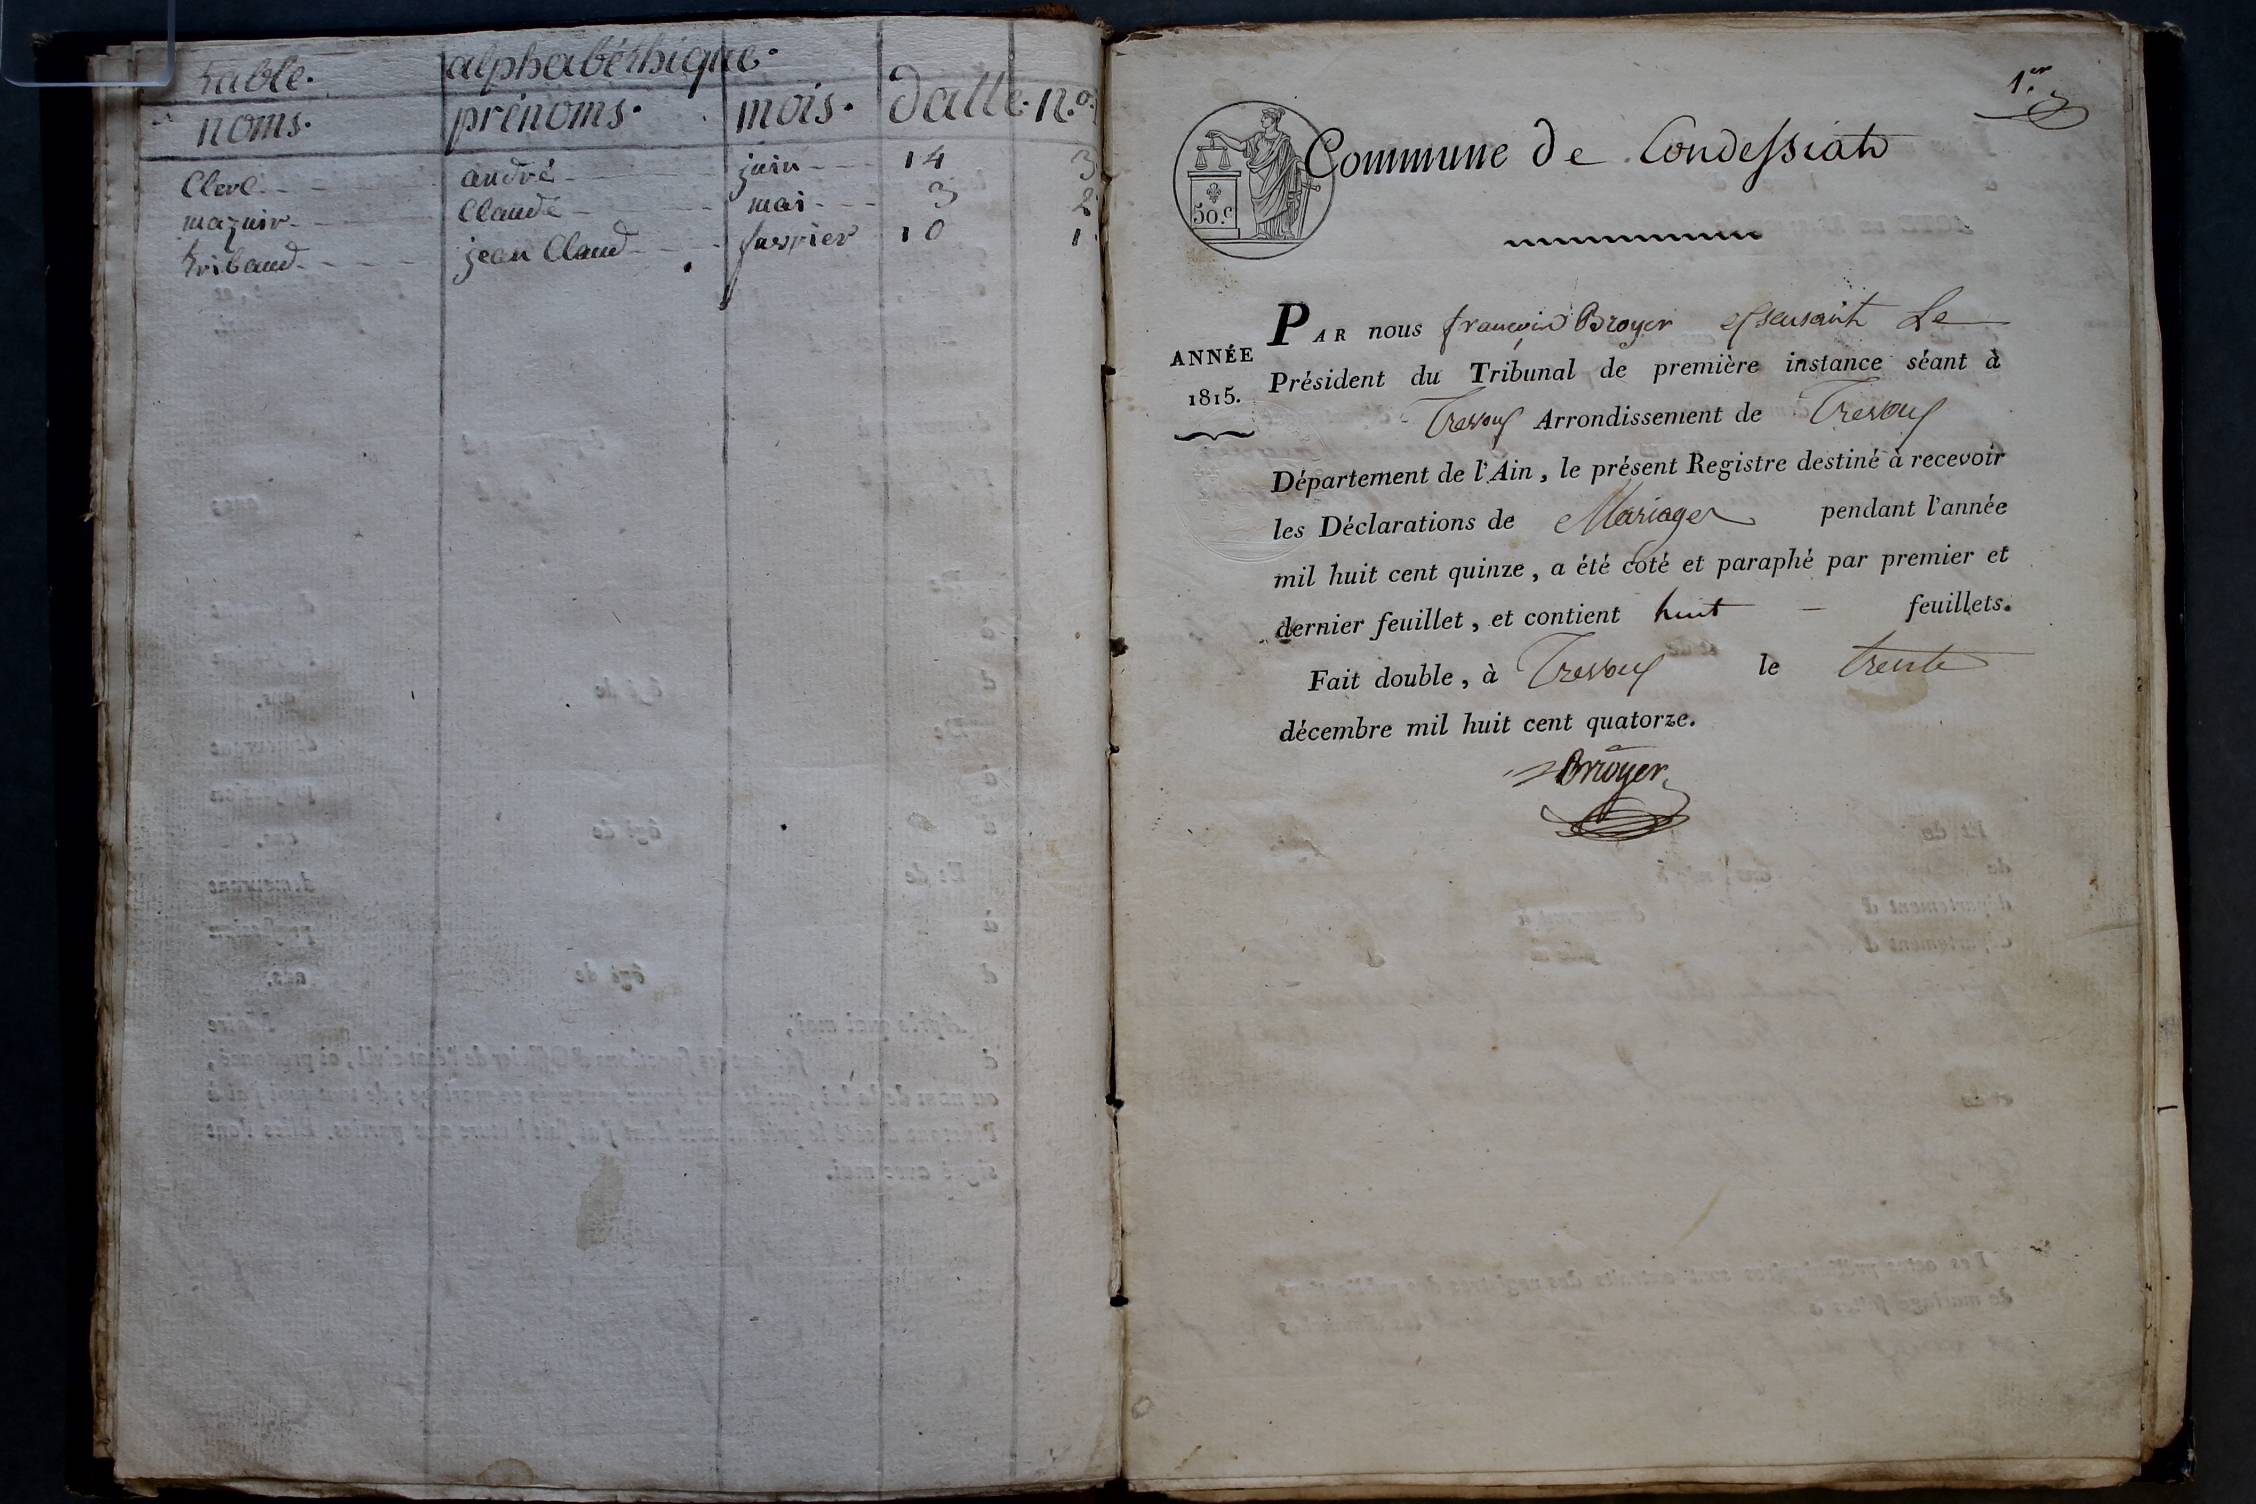 table. alphabéthique.
noms. prénoms. mois. datte. n.o
Clerc andré juin 14 3
mazuir Claude mai 3 2
tribaud jean Claud fevrier 10 1
1.er
50.c
Commune de Condessiat
ANNÉE
1815.
PAR nous françois Broyer Le
Président du Tribunal de première instance séant à
Trevoux Arrondissement de Trevoux
Département de l'Ain, le présent Registre destiné à recevoir
les Déclarations de Mariages pendant l'année
mil huit cent quinze, a été coté et paraphé par premier et
dernier feuillet, et contient huit feuillets.
Fait double, à Trevoux le trente
décembre mil huit cent quatorze.
Broyer